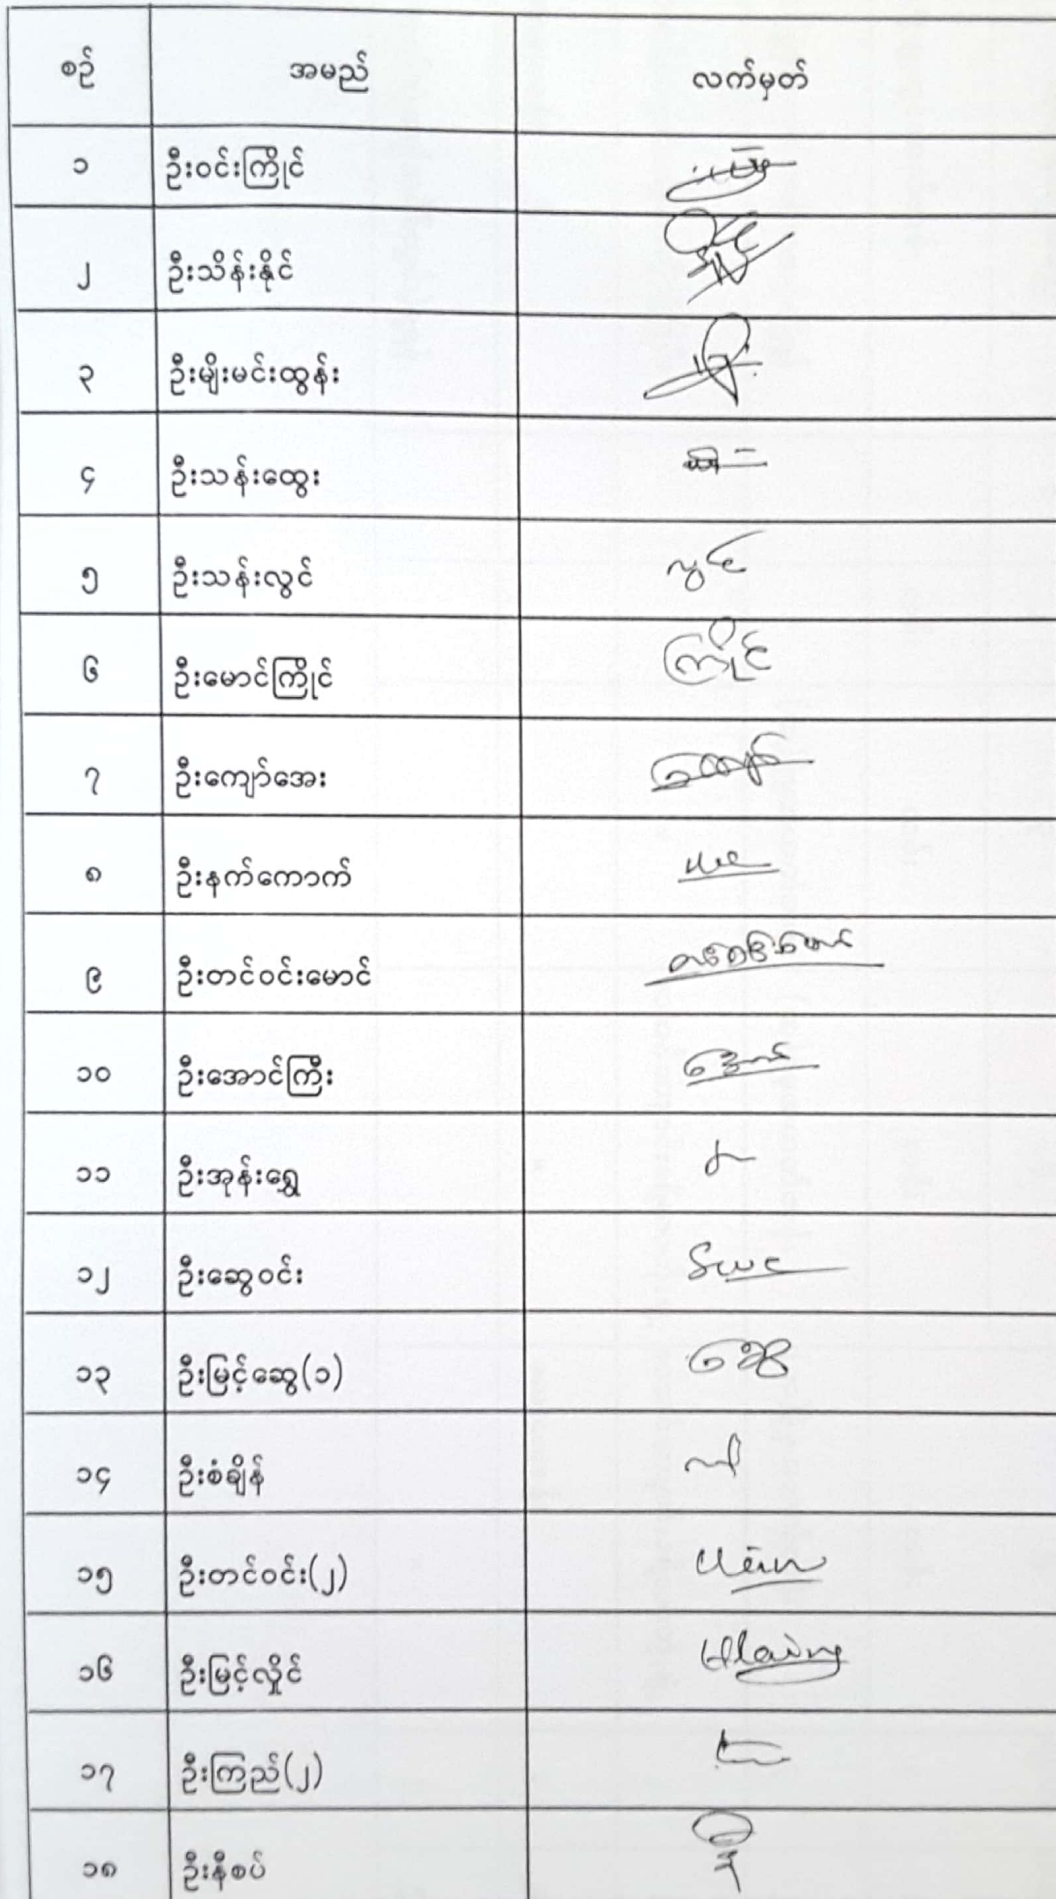 စဉ် အမည် လက်မှတ်
၁ ဦးဝင်းကြိုင်
၂ ဦးသိန်းနိုင်
၃ ဦးမျိုးမင်းထွန်း
၄ ဦးသန်းထွေး
၅ ဦးသန်းလွင် လွင်
၆ ဦးမောင်ကြိုင် ကြိုင်
၇ ဦးကျော်အေး
၈ ဦးနက်ကောက်
၉ ဦးတင်ဝင်းမောင်
၁၀ ဦးအောင်ကြီး
၁၁ ဦးအုန်းရွှေ
၁၂ ဦးဆွေဝင်း
၁၃ ဦးမြင့်ဆွေ(၁) ဆွေ
၁၄ ဦးစံချိန်
၁၅ ဦးတင်ဝင်း(၂)
၁၆ ဦးမြင့်လှိုင် Hlaing
၁၇ ဦးကြည်(၂)
၁၈ ဦးနီစပ်